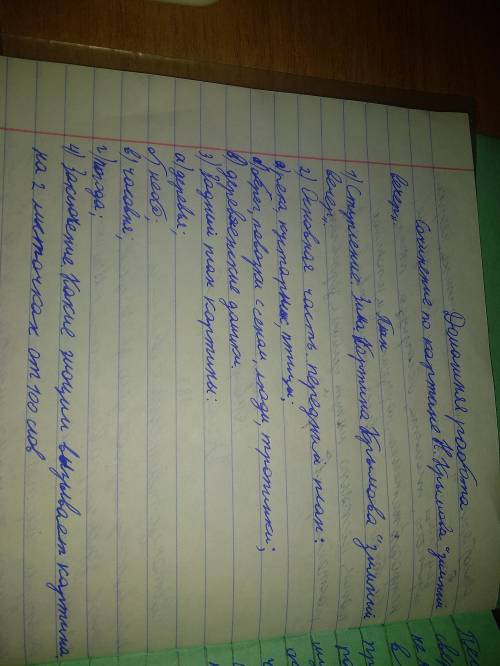 Домашняя работа
Сочинение по картине Н. Крымова "Зимний
вечер".
План
1) Вступление. Зима. Картина Крымова "Зимний
вечер".
2) Основная часть. передний план:
а) река, кустарник, птицы;
б) обрег, повозки с сеном, люди, тропинки;
в) деревенские домики.
3) Задний план картины:
а) деревья;
б) небо;
в) часовня;
г) погода;
4) Заключение. Какие эмоции вызывает картина.
на 2 листочках от 100 слов